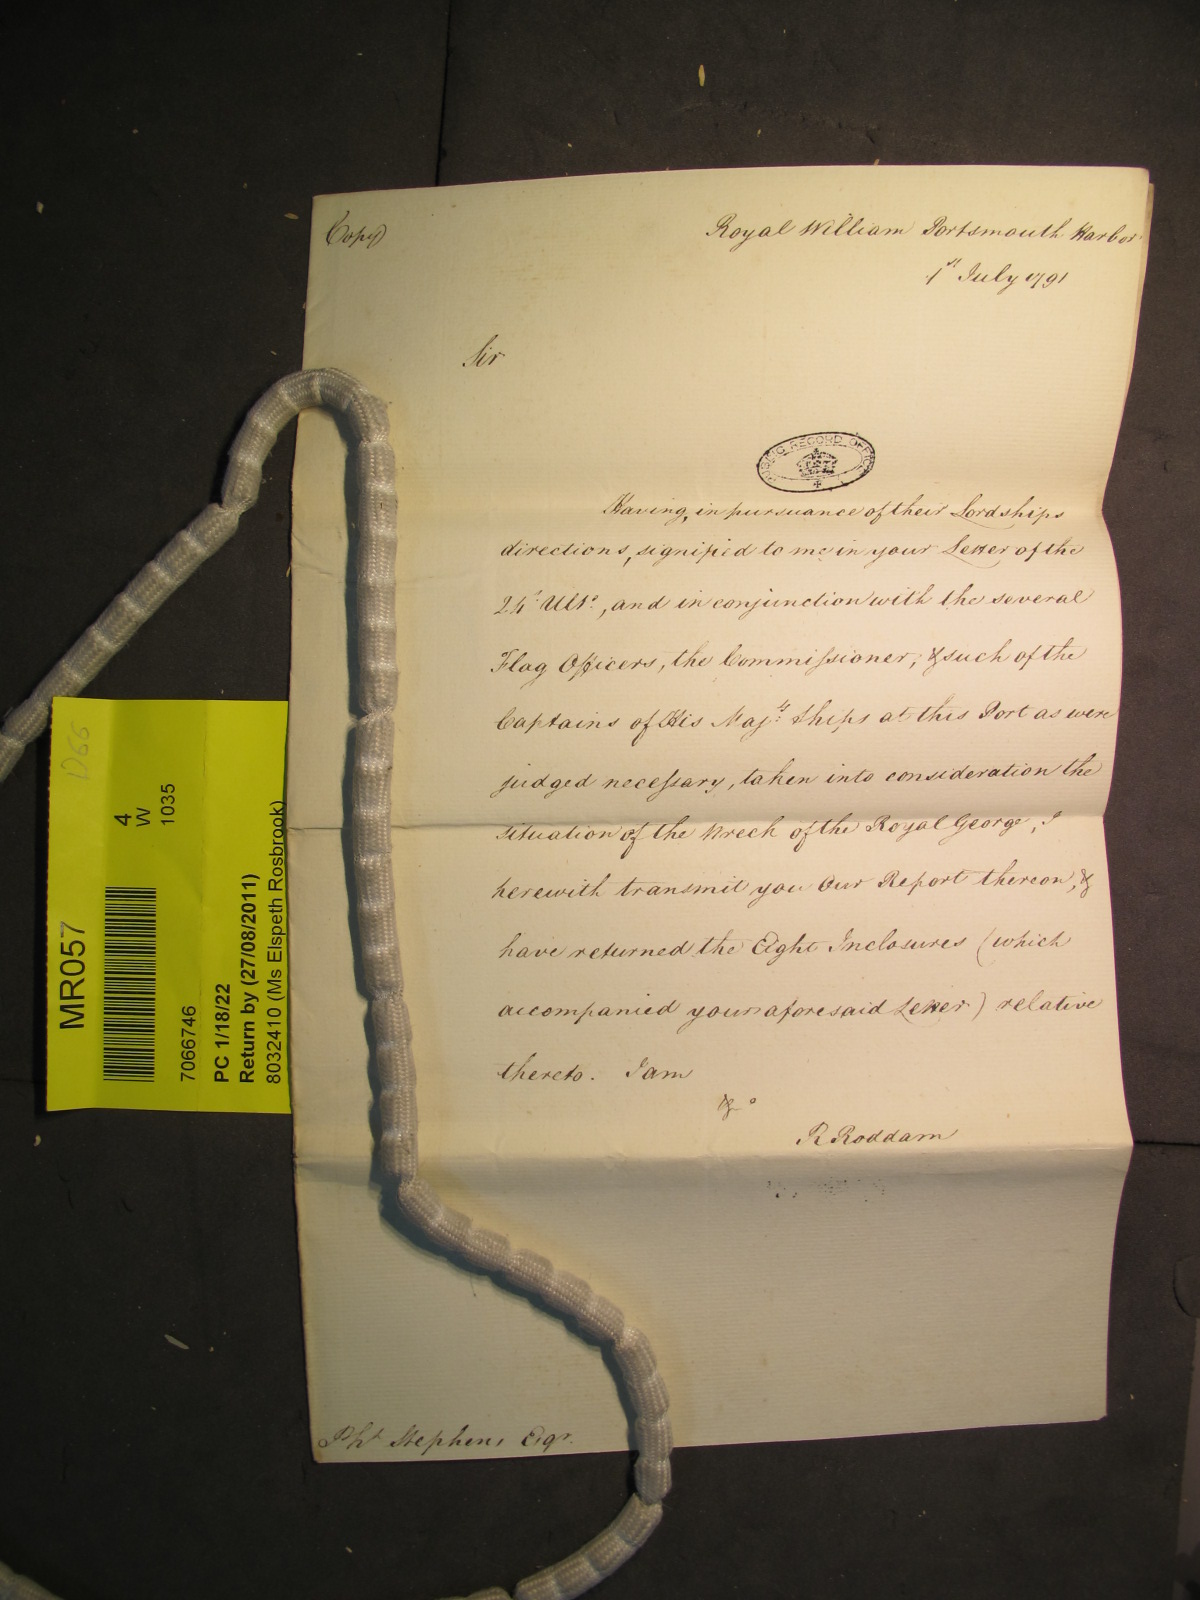 Copy
Royal William Portsmouth Harbor
1st July 1791
Sir
PUBLIC RECORD OFFICE
Having, in pursuance of their Lordships
directions, signified to me in your Letter of the
24th Ulto., and in conjunction with the several
Flag Officers, the Commissioner, & such of the
Captains of His Majts. Ships at this Port as were
judged necessary, taken into consideration the
situation of the Wreck of the Royal George, I
herewith transmit you Our Report thereon, &
have returned the Eight Inclosures (which
accompanied your aforesaid Letter) relative
thereto. I am
&c
R Roddam
Phs Stephens Esqr.
D66
4
W
1035
MR057
7066746
PC 1/18/22
Return by (27/08/2011)
8032410 (Ms Elspeth Rosbrook)